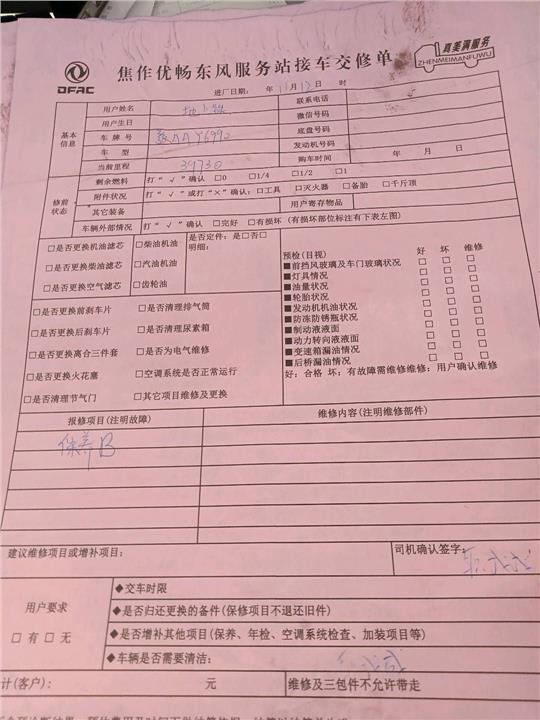 DFAC
焦作优畅东风服务站接车交修单
真美满服务
ZHENMEIMANFUWU
进厂日期: 年11月12日 时
基本信息
用户姓名 地上铁 联系电话
用户生日 微信号码
车牌号 AAY6992 底盘号码
车型 发动机号码
当前里程 39730 购车时间 年 月 日
修前状态
剩余燃料 打“√”确认 □0 □1/4 □1/2 □1
附件状况 打“√”或打“×”确认:□工具 □灭火器 □备胎 □千斤顶
其它装备 用户寄存物品
车辆外部情况 打“√”确认 □完好 □有损坏 (有损坏部位标注有下表左图)
□是否更换机油滤芯 □柴油机油 是否定件: 是□否□
明细:
□是否更换柴油滤芯 □汽油机油
□是否更换空气滤芯 □齿轮油
预检(目视) 好 坏 维修
■前挡风玻璃及车门玻璃状况 □ □ □
■灯具情况 □ □ □
■油量状况 □ □ □
■轮胎状况 □ □ □
■发动机机油状况 □ □ □
■防冻防锈瓶状况 □ □ □
■制动液液面 □ □ □
■动力转向液液面 □ □ □
■变速箱漏油情况 □ □ □
■后桥漏油情况 □ □ □
好: 合格 坏: 有故障需维修维修: 用户确认维修
□是否更换前刹车片 □是否清理排气筒
□是否更换后刹车片 □是否清理尿素箱
□是否更换离合三件套 □是否为电气维修
□是否更换火花塞 □空调系统是否正常运行
□是否清理节气门 □其它项目维修及更换
报修项目(注明故障) 维修内容(注明维修部件)
保养B
建议维修项目或增补项目: 司机确认签字:
用户要求
□有□无
◆交车时限
◆是否归还更换的备件(保修项目不退还旧件)
◆是否增补其他项目(保养、年检、空调系统检查、加装项目等)
◆车辆是否需要清洁:
计(客户): 元 维修及三包件不允许带走